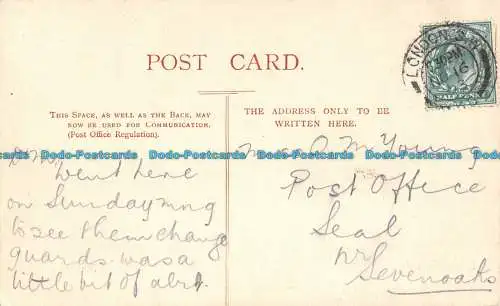 POST CARD.
THIS SPACE, AS WELL AS THE BACK, MAY
NOW BE USED FOR COMMUNICATION.
(Post Office Regulation).
THE ADDRESS ONLY TO BE
WRITTEN HERE.
LONDON
HALF PENNY
Dodo-Postcards Dodo-Postcards Dodo-Postcards Dodo-Postcards Dodo-Postcards Dodo-Postcards
Went here
on Sunday mng
to see them change
guards. was a
little bit of
Young
Post Office
Seal
nr
Sevenoaks